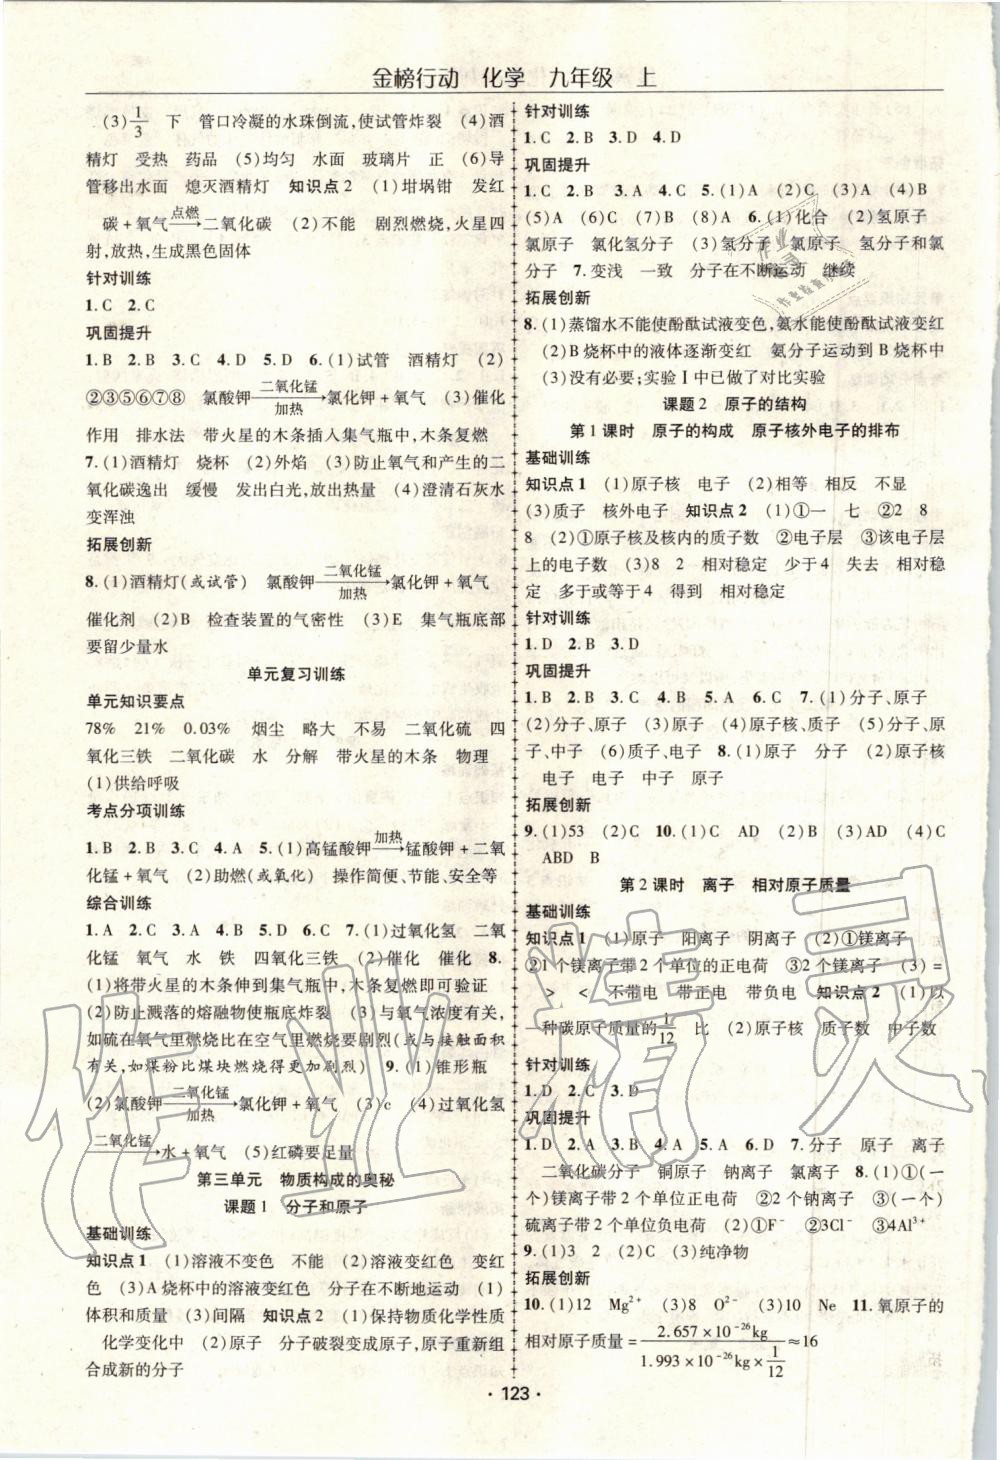 金榜行动　化学　九年级　上
(3)1/3　下　管口冷凝的水珠倒流,使试管炸裂　(4)酒
精灯　受热　药品　(5)均匀　水面　玻璃片　正　(6)导
管移出水面　熄灭酒精灯　知识点2　(1)坩埚钳　发红
碳+氧气 点燃→ 二氧化碳　(2)不能　剧烈燃烧,火星四
射,放热,生成黑色固体
针对训练
1.C　2.C
巩固提升
1.B　2.B　3.C　4.D　5.D　6.(1)试管　酒精灯　(2)
②③⑤⑥⑦⑧　氯酸钾 二氧化锰/加热→ 氯化钾+氧气　(3)催化
作用　排水法　带火星的木条插入集气瓶中,木条复燃
7.(1)酒精灯　烧杯　(2)外焰　(3)防止氧气和产生的二
氧化碳逸出　缓慢　发出白光,放出热量　(4)澄清石灰水
变浑浊
拓展创新
8.(1)酒精灯(或试管)　氯酸钾 二氧化锰/加热→ 氯化钾+氧气
催化剂　(2)B　检查装置的气密性　(3)E　集气瓶底部
要留少量水
单元复习训练
单元知识要点
78%　21%　0.03%　烟尘　略大　不易　二氧化硫　四
氧化三铁　二氧化碳　水　分解　带火星的木条　物理
(1)供给呼吸
考点分项训练
1.B　2.B　3.C　4.A　5.(1)高锰酸钾 加热→ 锰酸钾+二氧
化锰+氧气　(2)助燃(或氧化)　操作简便、节能、安全等
综合训练
1.A　2.C　3.C　4.B　5.D　6.C　7.(1)过氧化氢　二氧
化锰　氧气　水　铁　四氧化三铁　(2)催化　催化　8.
(1)将带火星的木条伸到集气瓶中,木条复燃即可验证
(2)防止溅落的熔融物使瓶底炸裂　(3)与氧气浓度有关,
如硫在氧气里燃烧比在空气里燃烧要剧烈(或与接触面积
有关,如煤粉比煤块燃烧得更加剧烈)　9.(1)锥形瓶
(2)氯酸钾 二氧化锰/加热→ 氯化钾+氧气　(3)c　(4)过氧化氢
二氧化锰→ 水+氧气　(5)红磷要足量
第三单元　物质构成的奥秘
课题1　分子和原子
基础训练
知识点1　(1)溶液不变色　不能　(2)溶液变红色　变红
色　(3)A烧杯中的溶液变红色　分子在不断地运动　(1)
体积和质量　(3)间隔　知识点2　(1)保持物质化学性质
化学变化中　(2)原子　分子破裂变成原子,原子重新组
合成新的分子
针对训练
1.C　2.B　3.D　4.D
巩固提升
1.C　2.B　3.A　4.C　5.(1)A　(2)C　(3)A　(4)B
(5)A　(6)C　(7)B　(8)A　6.(1)化合　(2)氢原子
氯原子　氯化氢分子　(3)氢分子　氯原子　氢分子和氯
分子　7.变浅　一致　分子在不断运动　继续
拓展创新
8.(1)蒸馏水不能使酚酞试液变色,氨水能使酚酞试液变红
(2)B烧杯中的液体逐渐变红　氨分子运动到B烧杯中
(3)没有必要;实验Ⅰ中已做了对比实验
课题2　原子的结构
第1课时　原子的构成　原子核外电子的排布
基础训练
知识点1　(1)原子核　电子　(2)相等　相反　不显
(3)质子　核外电子　知识点2　(1)①一　七　②2　8
8　(2)①原子核及核内的质子数　②电子层　③该电子层
上的电子数　(3)8　2　相对稳定　少于4　失去　相对稳
定　多于或等于4　得到　相对稳定
针对训练
1.D　2.B　3.D
巩固提升
1.B　2.B　3.C　4.B　5.A　6.C　7.(1)分子、原子
(2)分子、原子　(3)原子　(4)原子核、质子　(5)分子、原
子、中子　(6)质子、电子　8.(1)原子　分子　(2)原子核
电子　电子　中子　原子
拓展创新
9.(1)53　(2)C　10.(1)C　AD　(2)B　(3)AD　(4)C
ABD　B
第2课时　离子　相对原子质量
基础训练
知识点1　(1)原子　阳离子　阴离子　(2)①镁离子
②1个镁离子带2个单位的正电荷　③2个镁离子　(3)=
>　<　不带电　带正电　带负电　知识点2　(1)以
一种碳原子质量的1/12　比　(2)原子核　质子数　中子数
针对训练
1.D　2.C　3.D
巩固提升
1.D　2.A　3.B　4.A　5.A　6.D　7.分子　原子　离子
二氧化碳分子　铜原子　钠离子　氯离子　8.(1)①(一
个)镁离子带2个单位正电荷　②2个钠离子　③(一个)
硫离子带2个单位负电荷　(2)①F⁻　②3Cl⁻　③4Al³⁺
9.(1)3　2　(2)C　(3)纯净物
拓展创新
10.(1)12　Mg²⁺　(3)8　O²⁻　(3)10　Ne　11.氧原子的
相对原子质量=2.657×10⁻²⁶kg/(1.993×10⁻²⁶kg×1/12)≈16
·123·
作业精灵